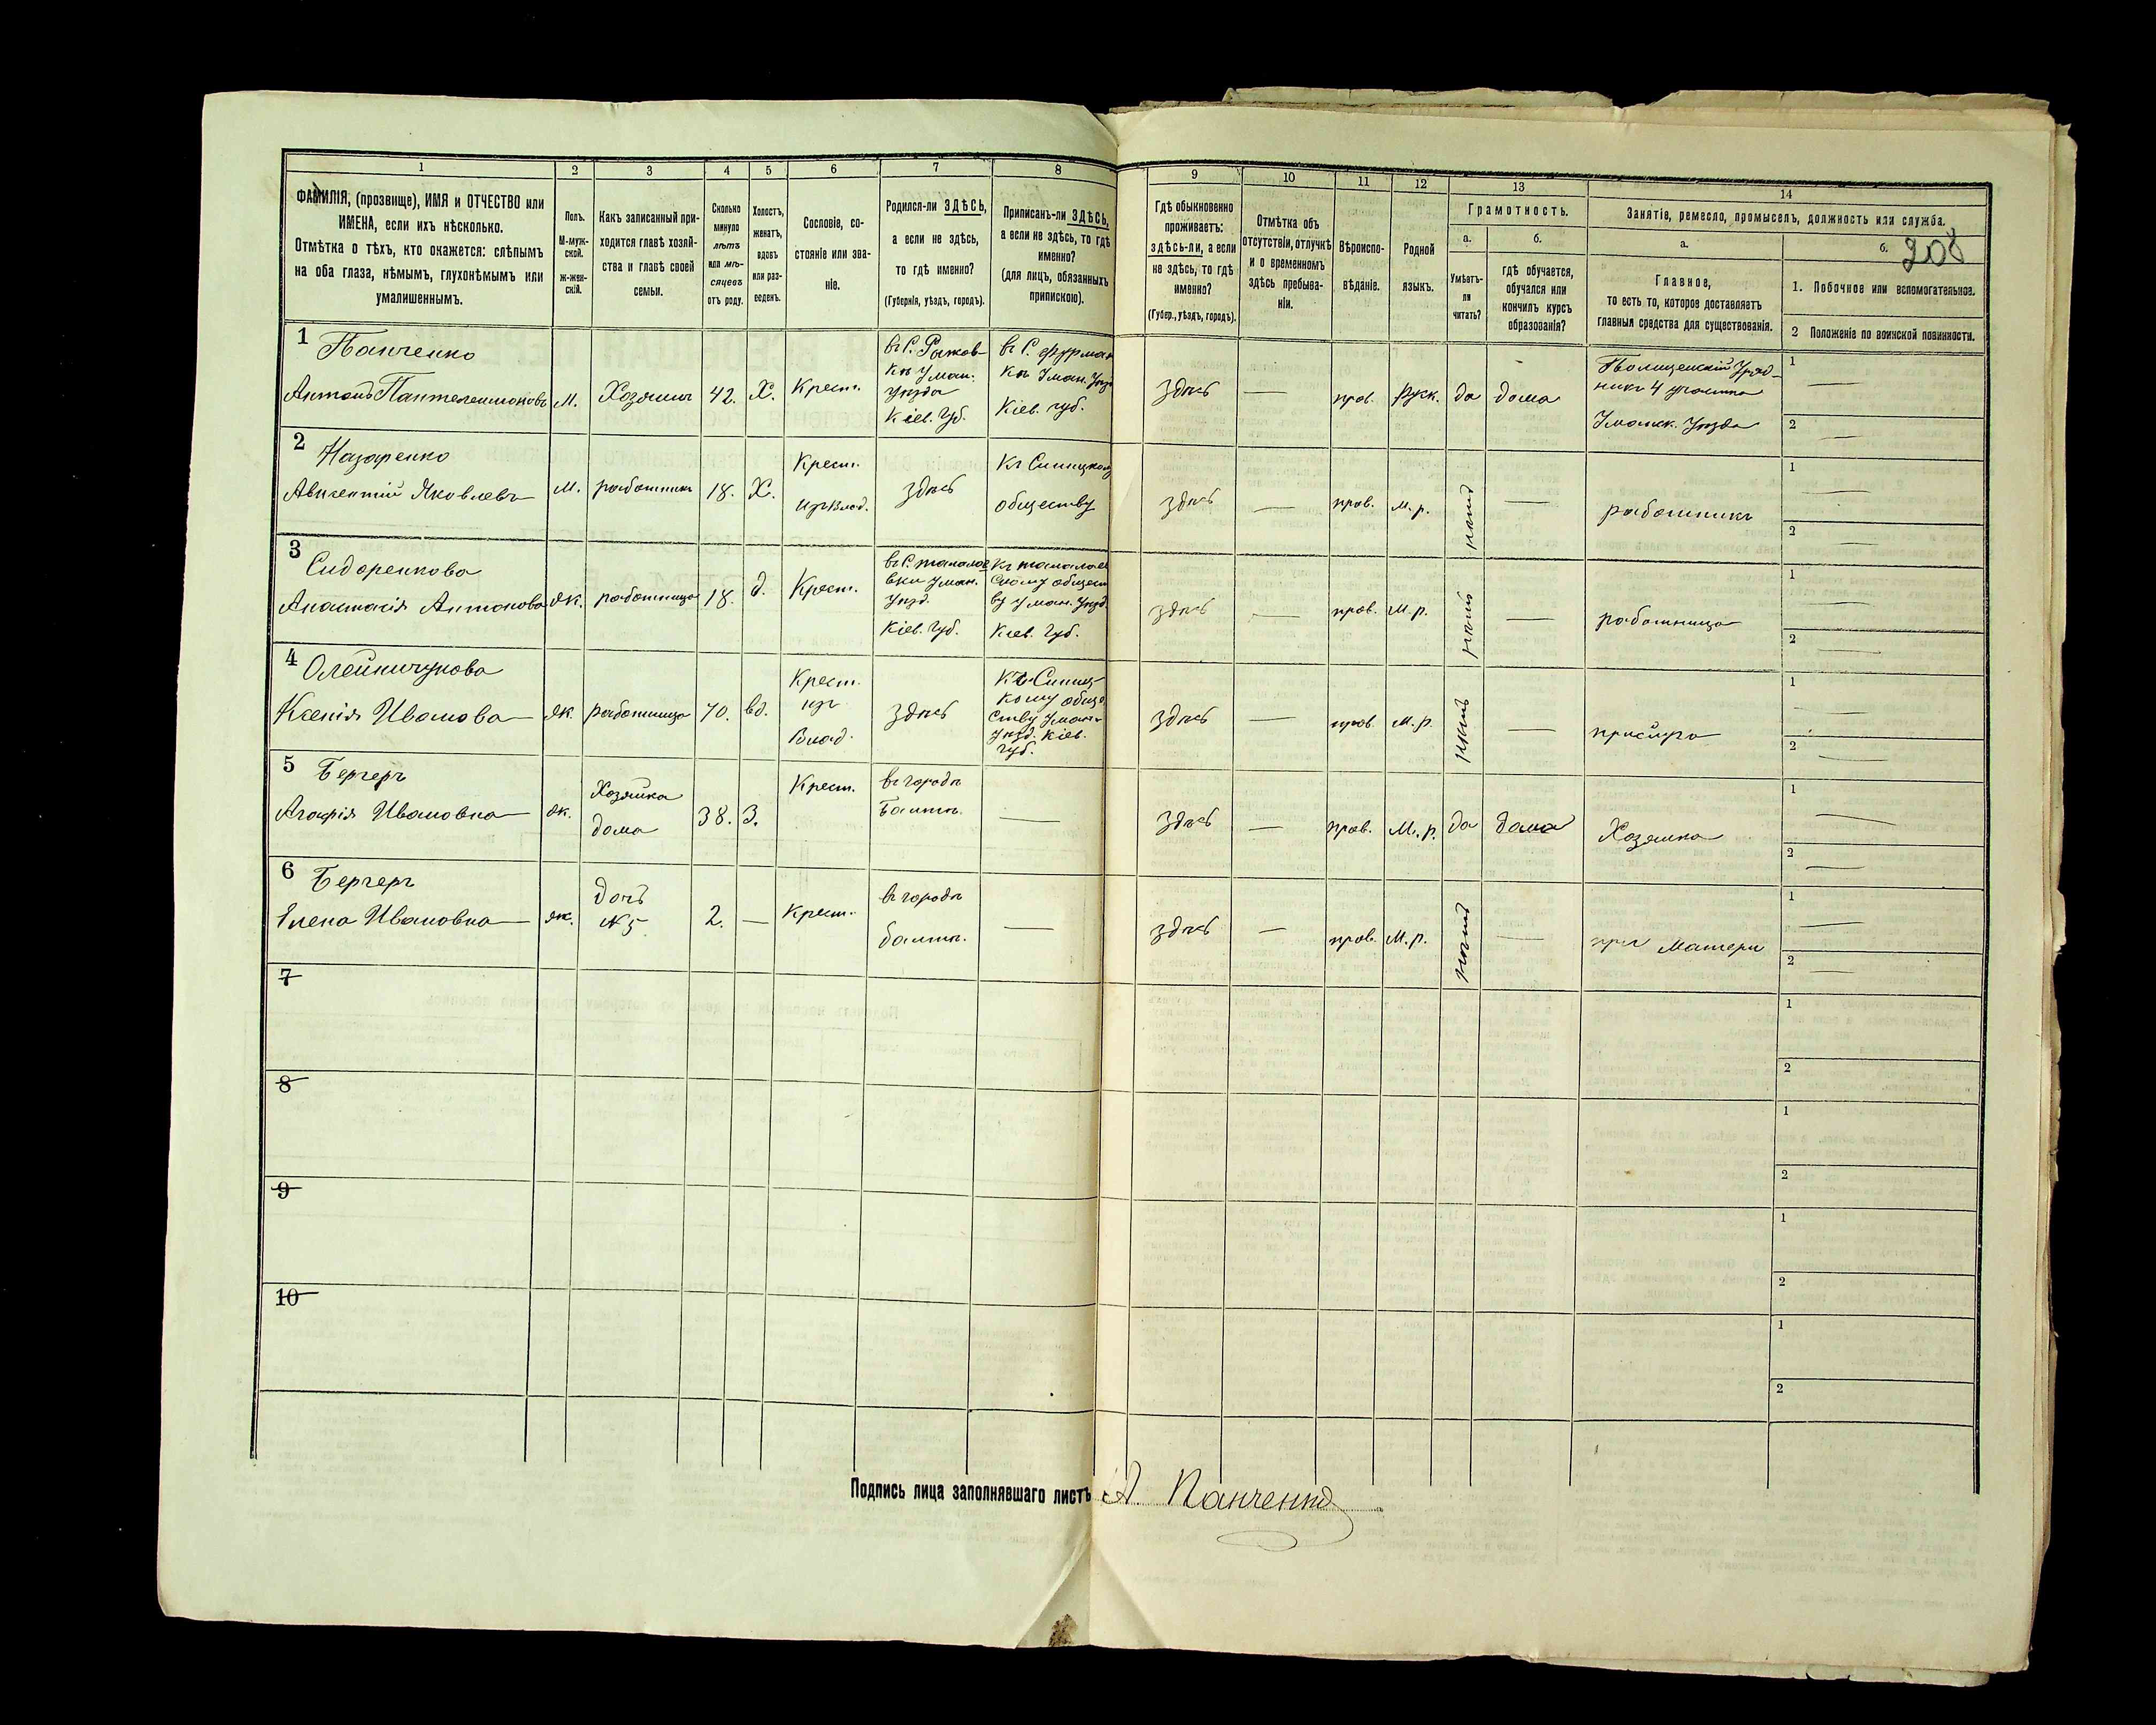 1 2 3 4 5 6 7 8 9 10 11 12 13 14
208
ФАМИЛІЯ, (прозвище), ИМЯ и ОТЧЕСТВО или
ИМЕНА, если ихъ нѣсколько.
Отмѣтка о тѣхъ, кто окажется: слѣпымъ
на оба глаза, нѣмымъ, глухонѣмымъ или
умалишеннымъ.
Полъ.
М-муж-
ской.
ж-жен-
скій.
Какъ записанный при-
ходится главѣ хозяй-
ства и главѣ своей
семьи.
Сколько
минуло
лѣтъ
или мѣ-
сяцевъ
отъ роду.
Холостъ,
женатъ,
вдовъ
или раз-
веденъ.
Сословіе, со-
стояніе или зва-
ніе.
Родился-ли ЗДѢСЬ,
а если не здѣсь,
то гдѣ именно?
(Губернія, уѣздъ, городъ).
Приписанъ-ли ЗДѢСЬ,
а если не здѣсь, то гдѣ
именно?
(для лицъ, обязанныхъ
припискою).
Гдѣ обыкновенно
проживаетъ:
здѣсь-ли, а если
не здѣсь, то гдѣ
именно?
(Губер., уѣздъ, городъ).
Отмѣтка объ
отсутствіи, отлучкѣ
и о временномъ
здѣсь пребыва-
ніи.
Вѣроиспо-
вѣданіе.
Родной
языкъ.
Грамотность.
а.
Умѣетъ-
ли
читать?
б.
гдѣ обучается,
обучался или
кончилъ курсъ
образованія?
Занятіе, ремесло, промыселъ, должность или служба.
а.
Главное,
то есть то, которое доставляетъ
главныя средства для существованія.
б.
1. Побочное или вспомогательное.
2 Положеніе по воинской повинности.
1 Панченко
Антонъ Пантелеимоновъ
М.
Хозяинъ
42.
Х.
Крест.
въ С. Рыжов-
кѣ Уман.
Уѣзда
Кіев. Губ.
въ С. Фурман
кѣ Уман. Уѣзд
Кіев. губ.
здѣсь
—
прав.
Русск.
да
дома
Полицейскій Уряд-
никъ 4 участка
Уманск. Уѣзда
1 —
2 —
2 Назаренко
Авксентій Яковлевъ
М.
работникъ
18.
Х.
Крест.
изъ Влад.
здѣсь
Къ Синицкому
обществу
здѣсь
—
прав.
М. р.
нѣтъ
—
работникъ
1 —
2 —
3 Сидоренкова
Анастасія Антонова
Ж.
работница
18.
д.
Крест.
Уман.
Уѣзд.
Кіев. Губ.
скому общест
ву Уман. Уѣзд.
Кіев. Губ.
здѣсь
—
прав.
М. р.
нѣтъ
—
работница
1 —
2 —
4 Олейничукова
Ксенія Иванова
Ж.
работница
70.
вд.
Крест.
изъ
Влад.
здѣсь
Къ Синиц-
кому обще
ству Уман.
Уѣзд. Кіев.
губ.
здѣсь
—
прав.
М. р.
нѣтъ
—
1 —
2 —
5 Бергеръ
Агафія Ивановна
Ж.
Хозяйка
дома
38.
З.
Крест.
въ городѣ
Балтѣ.
—
здѣсь
—
прав.
М. р.
да
дома
Хозяйка
1 —
2 —
6 Бергеръ
Елена Ивановна
Ж.
дочь
№ 5
2.
—
Крест.
въ городѣ
балтѣ.
—
здѣсь
—
прав.
М. р.
нѣтъ
—
при матери
1 —
2 —
7
1
2
8
1
2
9
1
2
10
1
2
Подпись лица заполнявшаго листъ А. Панченко